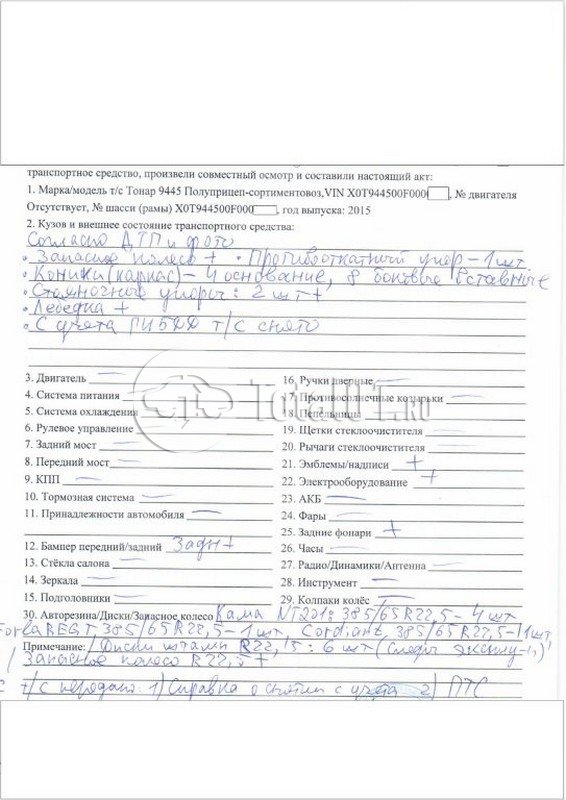 транспортное средство, произвели совместный осмотр и составили настоящий акт:
1. Марка/модель т/с Тонар 9445 Полуприцеп-сортиментовоз,VIN X0T944500F000, № двигателя
Отсутствует, № шасси (рамы) X0T944500F000, год выпуска: 2015
2. Кузов и внешнее состояние транспортного средства:
Согласно ДТП и фото
• Запасное колесо + • Противооткатный упор – 1 шт.
• Коники (каркас) – 4 основание, 8 боковые вставные
• Стояночные упоры: 2 шт +
• Лебедка +
• С учета ГИБДД т/с снято
3. Двигатель —
4. Система питания —
5. Система охлаждения —
6. Рулевое управление —
7. Задний мост —
8. Передний мост —
9. КПП —
10. Тормозная система —
11. Принадлежности автомобиля —
12. Бампер передний/задний Задн +
13. Стёкла салона —
14. Зеркала —
15. Подголовники —
16. Ручки дверные —
17. Противосолнечные козырьки —
18. Пепельницы —
19. Щетки стеклоочистителя —
20. Рычаги стеклоочистителя —
21. Эмблемы/надписи +
22. Электрооборудование +
23. АКБ —
24. Фары —
25. Задние фонари +
26. Часы —
27. Радио/Динамики/Антенна —
28. Инструмент —
29. Колпаки колёс —
TotalUT.RU
30. Авторезина/Диски/Запасное колесо Кама NT201: 385/65R22,5 – 4 шт
385/65R22,5 – 1 шт, Cordiant 385/65R22,5 – 1 шт,
Примечание: Диски штамп R22,5: 6 шт (Следы эксплу-и)
Запасное колесо R22,5 +
С т/с передано: 1) Справка о снятии с учета 2) ПТС